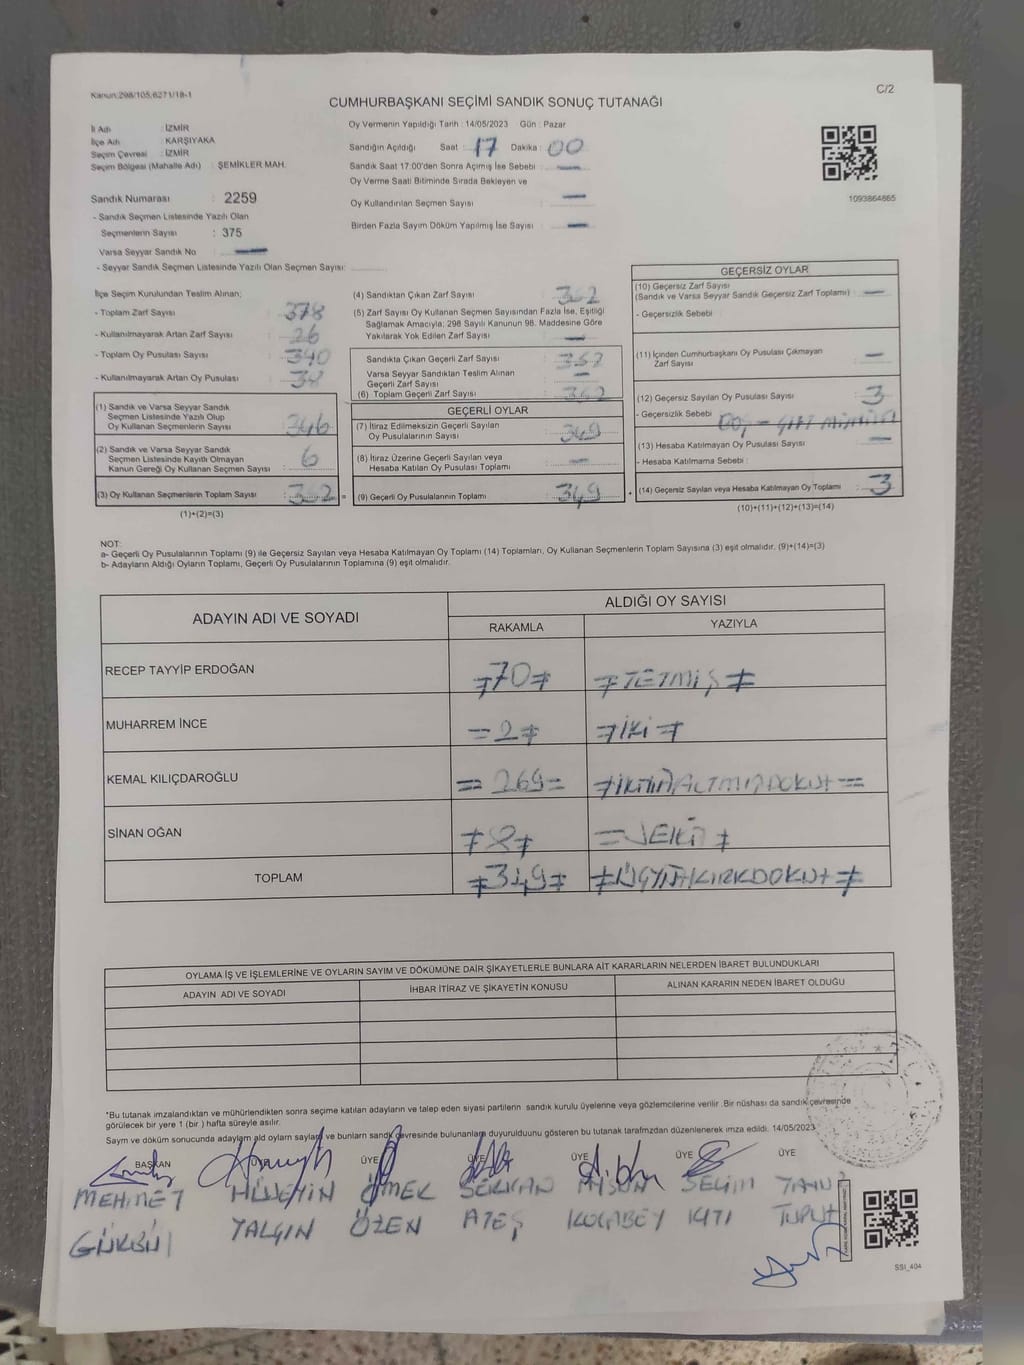 Kanun:298/105,6271/18-1
C/2
CUMHURBAŞKANI SEÇİMİ SANDIK SONUÇ TUTANAĞI
İl Adı : İZMİR
İlçe Adı : KARŞIYAKA
Seçim Çevresi : İZMİR
Seçim Bölgesi (Mahalle Adı) : ŞEMİKLER MAH.
Sandık Numarası : 2259
- Sandık Seçmen Listesinde Yazılı Olan
Seçmenlerin Sayısı : 375
Varsa Seyyar Sandık No
- Seyyar Sandık Seçmen Listesinde Yazılı Olan Seçmen Sayısı:
Oy Vermenin Yapıldığı Tarih : 14/05/2023 Gün : Pazar
Sandığın Açıldığı Saat : 17 Dakika : 00
Sandık Saat 17:00'den Sonra Açılmış İse Sebebi : —
Oy Verme Saati Bitiminde Sırada Bekleyen ve
Oy Kullandırılan Seçmen Sayısı : —
Birden Fazla Sayım Döküm Yapılmış İse Sayısı : —
1093864865
İlçe Seçim Kurulundan Teslim Alınan;
- Toplam Zarf Sayısı : 378
- Kullanılmayarak Artan Zarf Sayısı : 26
- Toplam Oy Pusulası Sayısı :
- Kullanılmayarak Artan Oy Pusulası :
(1) Sandık ve Varsa Seyyar Sandık
Seçmen Listesinde Yazılı Olup
Oy Kullanan Seçmenlerin Sayısı : 346
(2) Sandık ve Varsa Seyyar Sandık
Seçmen Listesinde Kayıtlı Olmayan
Kanun Gereği Oy Kullanan Seçmen Sayısı : 6
(3) Oy Kullanan Seçmenlerin Toplam Sayısı :
=
(1)+(2)=(3)
(4) Sandıktan Çıkan Zarf Sayısı :
(5) Zarf Sayısı Oy Kullanan Seçmen Sayısından Fazla İse, Eşitliği
Sağlamak Amacıyla; 298 Sayılı Kanunun 98. Maddesine Göre
Yakılarak Yok Edilen Zarf Sayısı : —
Sandıkta Çıkan Geçerli Zarf Sayısı : 352
Varsa Seyyar Sandıktan Teslim Alınan
Geçerli Zarf Sayısı : —
(6) Toplam Geçerli Zarf Sayısı :
GEÇERLİ OYLAR
(7) İtiraz Edilmeksizin Geçerli Sayılan
Oy Pusulalarının Sayısı : 349
(8) İtiraz Üzerine Geçerli Sayılan veya
Hesaba Katılan Oy Pusulası Toplamı : —
(9) Geçerli Oy Pusulalarının Toplamı : 349
+
GEÇERSİZ OYLAR
(10) Geçersiz Zarf Sayısı
(Sandık ve Varsa Seyyar Sandık Geçersiz Zarf Toplamı) : —
- Geçersizlik Sebebi :
(11) İçinden Cumhurbaşkanı Oy Pusulası Çıkmayan
Zarf Sayısı : —
(12) Geçersiz Sayılan Oy Pusulası Sayısı : 3
- Geçersizlik Sebebi :
(13) Hesaba Katılmayan Oy Pusulası Sayısı : —
- Hesaba Katılmama Sebebi :
(14) Geçersiz Sayılan veya Hesaba Katılmayan Oy Toplamı : 3
(10)+(11)+(12)+(13)=(14)
NOT:
a- Geçerli Oy Pusulalarının Toplamı (9) ile Geçersiz Sayılan veya Hesaba Katılmayan Oy Toplamı (14) Toplamları, Oy Kullanan Seçmenlerin Toplam Sayısına (3) eşit olmalıdır. (9)+(14)=(3)
b- Adayların Aldığı Oyların Toplamı, Geçerli Oy Pusulalarının Toplamına (9) eşit olmalıdır.
ADAYIN ADI VE SOYADI
ALDIĞI OY SAYISI
RAKAMLA
YAZIYLA
RECEP TAYYİP ERDOĞAN 70 YETMİŞ
MUHARREM İNCE = 2 İKİ
KEMAL KILIÇDAROĞLU = 269 = İKİYÜZALTMIŞDOKUZ ==
SİNAN OĞAN 8 = SEKİZ
TOPLAM 349 ÜÇYÜZKIRKDOKUZ
OYLAMA İŞ VE İŞLEMLERİNE VE OYLARIN SAYIM VE DÖKÜMÜNE DAİR ŞİKAYETLERLE BUNLARA AİT KARARLARIN NELERDEN İBARET BULUNDUKLARI
ADAYIN ADI VE SOYADI
İHBAR İTİRAZ VE ŞİKAYETİN KONUSU
ALINAN KARARIN NEDEN İBARET OLDUĞU
*Bu tutanak imzalandıktan ve mühürlendikten sonra seçime katılan adayların ve talep eden siyasi partilerin sandık kurulu üyelerine veya gözlemcilerine verilir .Bir nüshası da sandık çevresinde
görülecek bir yere 1 (bir ) hafta süreyle asılır.
Sayım ve döküm sonucunda adayların aldı oyların sayıları ve bunların sandık çevresinde bulunanlara duyurulduunu gösteren bu tutanak tarafmzdan düzenlenerek imza edildi. 14/05/2023
BAŞKAN ÜYE ÜYE ÜYE ÜYE ÜYE ÜYE
MEHMET HÜSEYİN ÖMER SERKAN SELİM
YALÇIN ÖZEN ATEŞ KOCABEY KATI
SSI_404